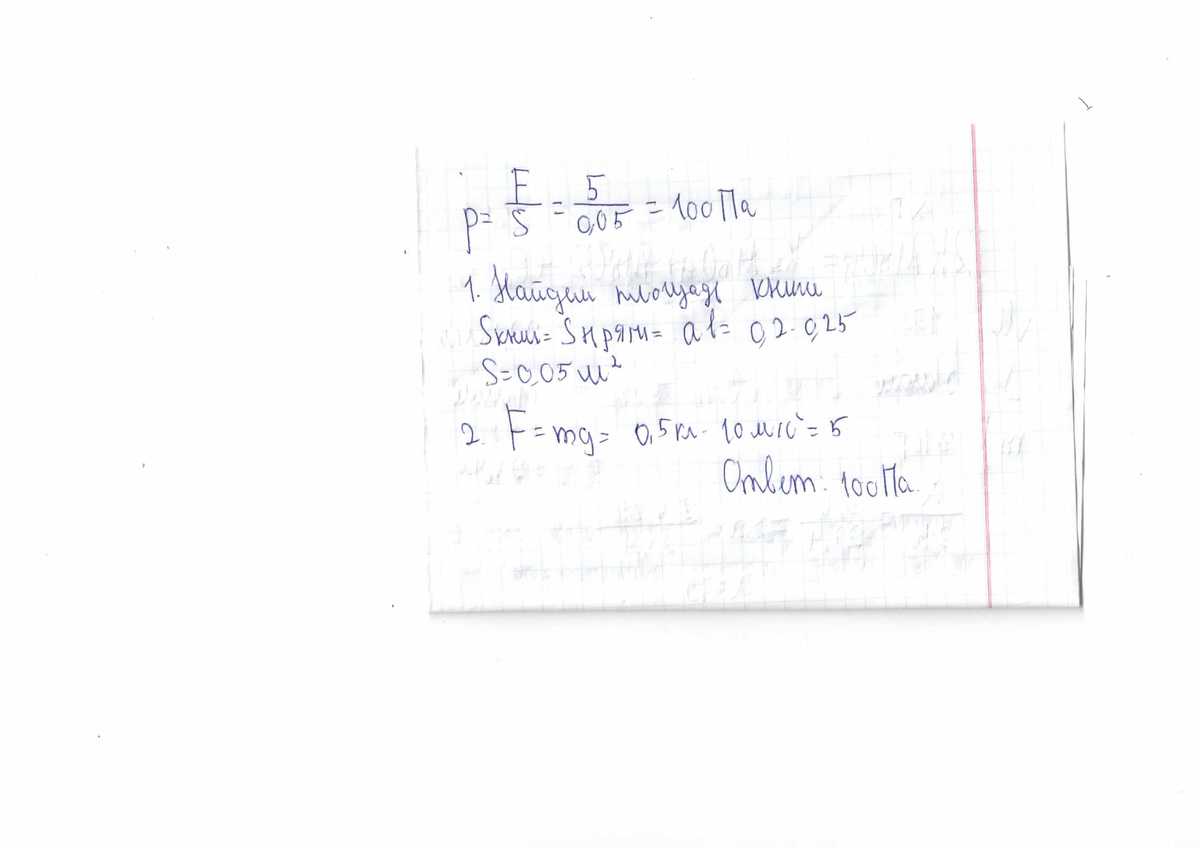 p = F/S = 5/0,05 = 100 Па
1. Найдем площадь книги
Sкниг = Sпрям = ab = 0,2 · 0,25
S = 0,05 м²
2. F = mg = 0,5 кг · 10 м/с² = 5
Ответ: 100 Па.